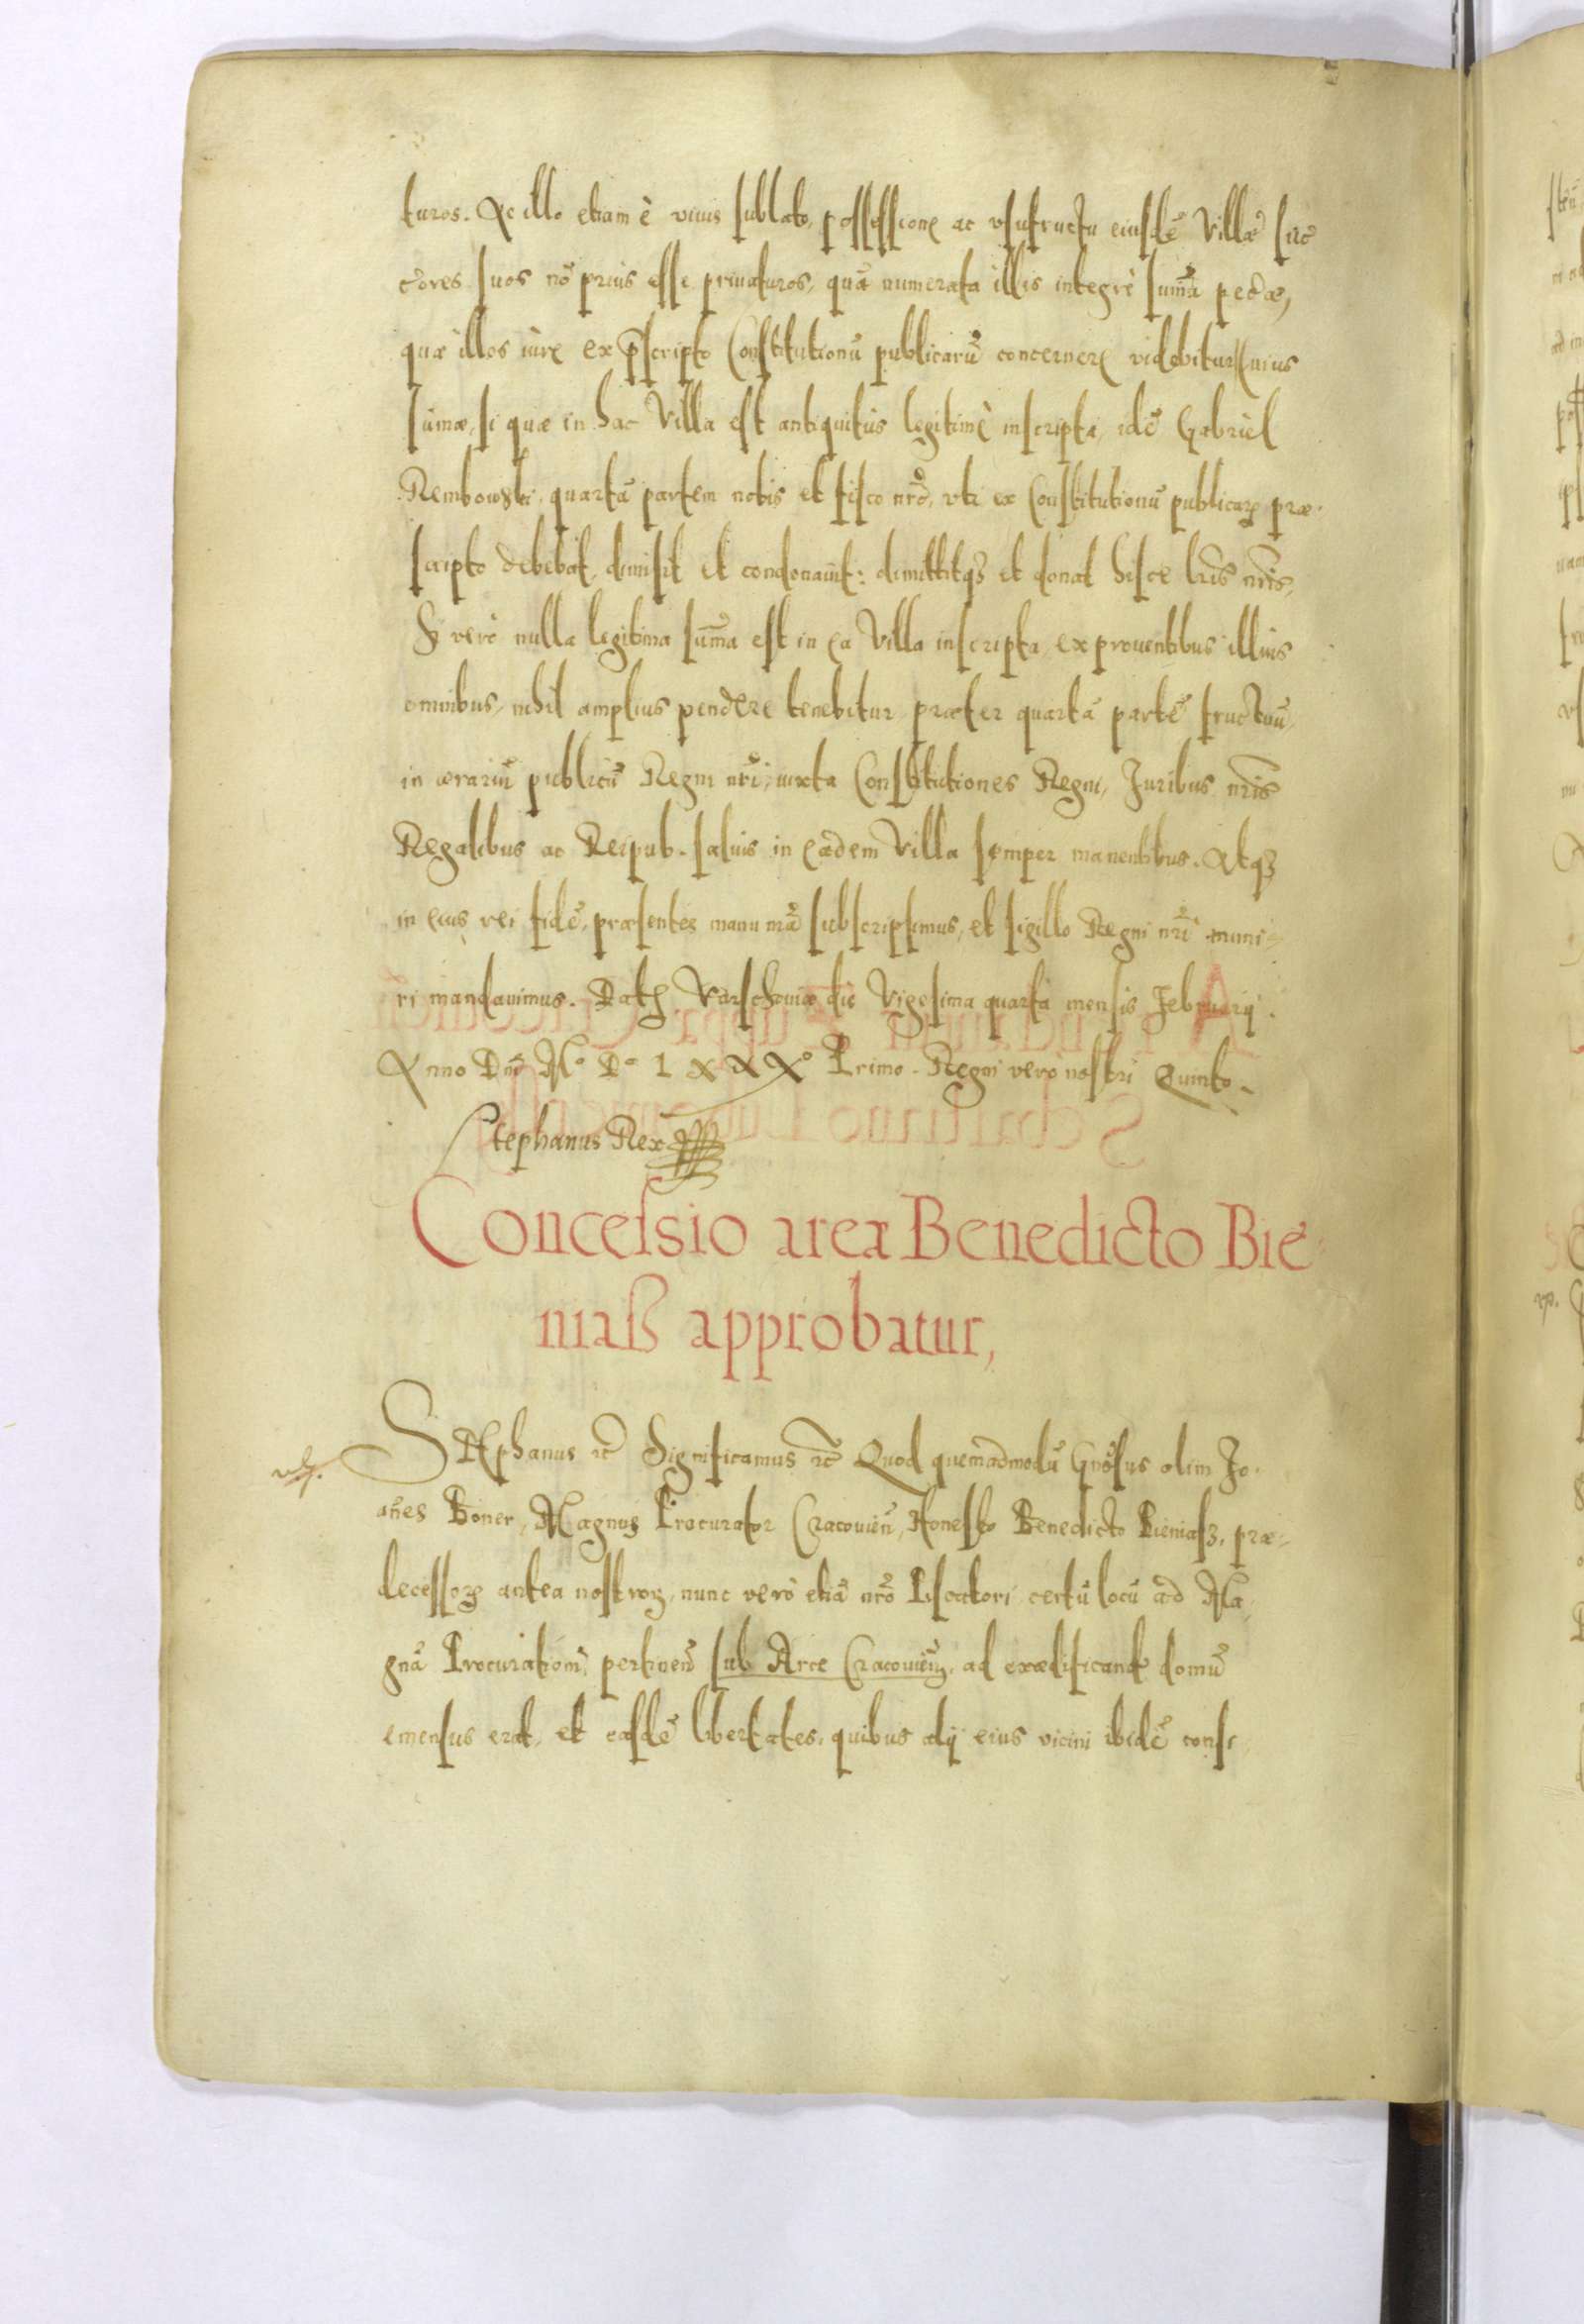 turos. Ac illo etiam è viuis sublato, possessione ac vsufructu eiusdē Villæ suc
c̃ores suos nō prius esse priuaturos, quā numerata illis integrè sum̃a pec̃æ,
quæ illos iure ex p̃scripto Constitutionū publicarū concernere videbitur. Cuius
sum̃æ, si quæ in hac Villa est antiquitùs legitimè inscripta, idē Gabriel
Rembowski, quartā partem nobis et fisco nr̃o, vti ex Constitutionū publicarꝫ præ-
scripto debebat, dimisit et condonauit: dimittitqꝫ et donat hisce lr̃is nr̃is,
Si verò nulla legitima sum̃a est in ea Villa inscripta, ex prouentibus illius
omnibus, nihil amplius pendere tenebitur præter quartā partē fructuū,
in ærariū publicū Regni nr̃i, iuxta Constitutiones Regni, Juribus nr̃is
Regalibus ac Reipub. saluis in eadem Villa semper manentibus. Atqꝫ
in eius rei fidē, præsentes manu nr̃a subscripsimus, et sigillo Regni nr̃i muni-
ri mandauimus. Datꝫ Varschouiæ die Vigesima quarta mensis Februarij.
Anno Dñi Mº Dº LXXXº Primo. Regni verò nostri Quinto.
Stephanus Rex
Concessio area Benedicto Bie-
niaß approbatur,
STEphanus etc̃ Significamus etc̃ Quod quemadmodū Gñosus olim Jo-
añes Boner, Magnus Procurator Cracouieñ, Honesto Benedicto Bieniasz, præ-
decessorꝫ antea nostrorꝫ, nunc verò etiā nr̃o Piscatori, certū locū ad Ma-
gnā Procurationē pertineñ sub Arce Cracouieñ, ad exædificandā domū
emensus erat, et easdē libertates, quibus alij eius vicini ibidē consi-